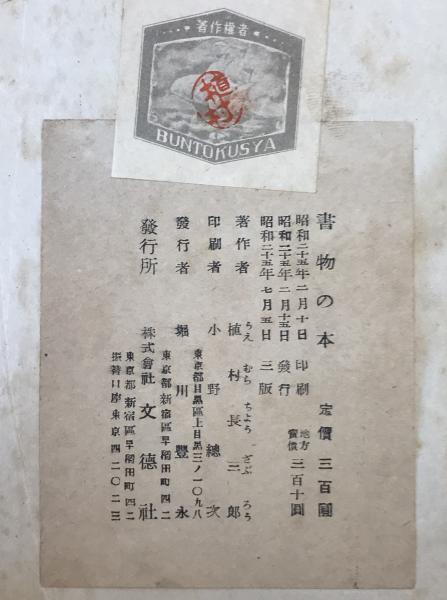 著作權者
植村
BUNTOKUSYA
書物の本 定價 三百圓
地方賣價 三百十圓
昭和二十五年二月十日 印刷
昭和二十五年二月十五日 發行
昭和二十五年七月五日 三版
著作者 植村長三郎
うえ むら ちよう ざぶ ろう
印刷者 小野總次
東京都目黒區上目黒三ノ一〇九八
發行者 堀川豐永
東京都新宿區早稲田町四二
發行所 株式會社 文德社
東京都新宿區早稲田町四二
振替口座東京四二〇二三